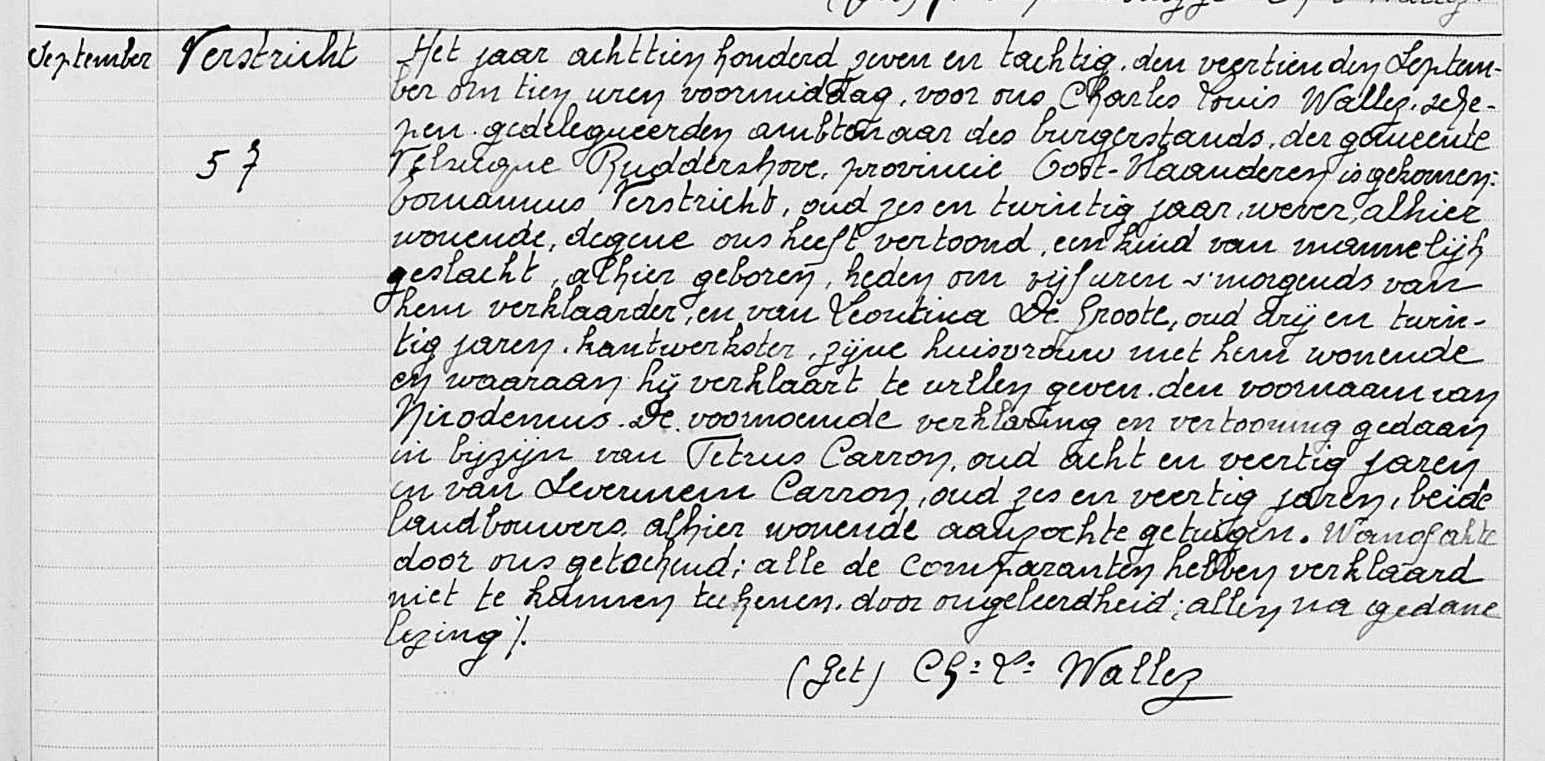 September Verstricht Het jaar achttien honderd zeven en tachtig, den veertienden Septem-
ber om tien uren voormiddag, voor ons Charles Louis Wallez, sche-
pen gedelegueerden ambtenaar des burgerstands, der gemeente
57 Velsicque Ruddershove, provincie Oost-Vlaanderen is gekomen:
Verstricht, oud zes en twintig jaar, wever, alhier
wonende, degene ons heeft vertoond, een kind van mannelijk
geslacht, alhier geboren, heden om vijf uren s'morgends van
hem verklaarder, en van Leontina De Groote, oud drij en twin-
tig jaren, kantwerkster, zijne huisvrouw met hem wonende
en waaraan hij verklaart te willen geven den voornaam van
Nicodemus. De voornoemde verklaring en vertooning gedaan
in bijzijn van Petrus Carron, oud acht en veertig jaren
en van Carron, oud zes en veertig jaren, beide
landbouwers, alhier wonende aanzochte getuigen. Wanof akte
door ons getekend; alle de comparanten hebben verklaard
niet te kunnen teekenen, door ongeleerdheid; allen na gedane
lezing /.
(Get) Ch: Ls: Wallez